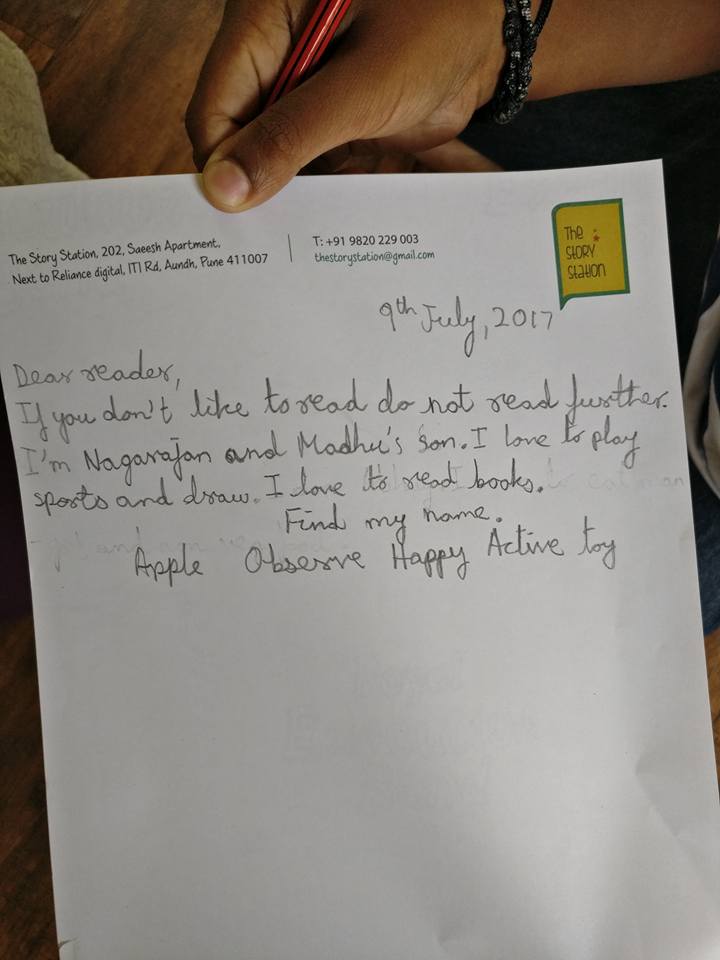 The Story Station, 202, Saeesh Apartment,
Next to Reliance digital, ITI Rd, Aundh, Pune 411007
T: +91 9820 229 003
thestorystation@gmail.com
The
STORY
STATION
9th July, 2017
Dear reader,
If you don't like to read do not read further.
I'm Nagarajan and Madhu's son. I love to play
sports and draw. I love to read books.
Find my name.
Apple Observe Happy Active toy